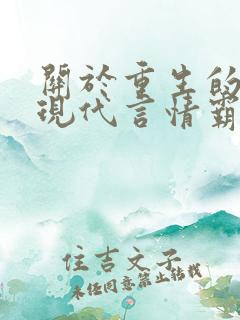 關於重生的
現代言情霸
住吉文子
未經同意禁止轉載